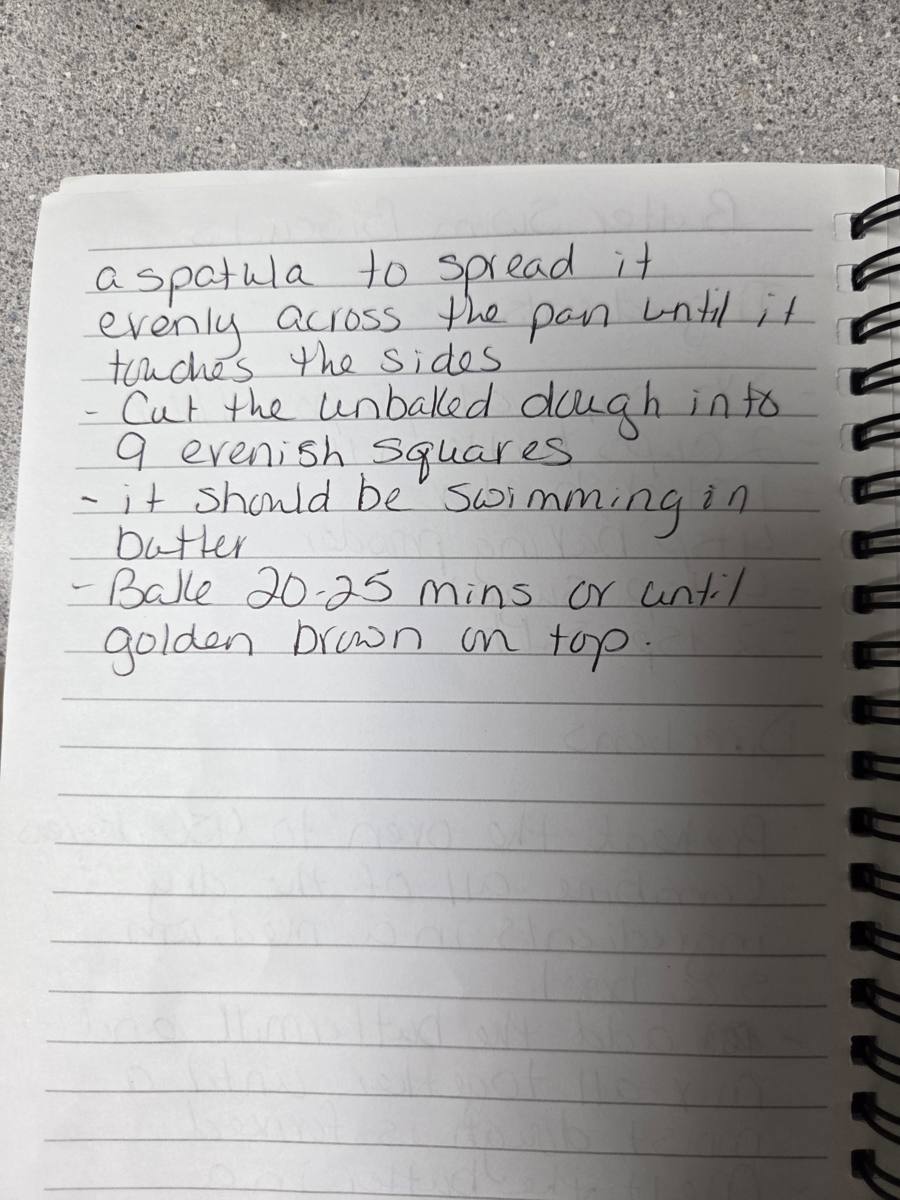 a spatula to spread it
evenly across the pan until it
touches the sides
- Cut the unbaked dough into
9 evenish squares
- it should be swimming in
butter
- Bake 20-25 mins or until
golden brown on top.